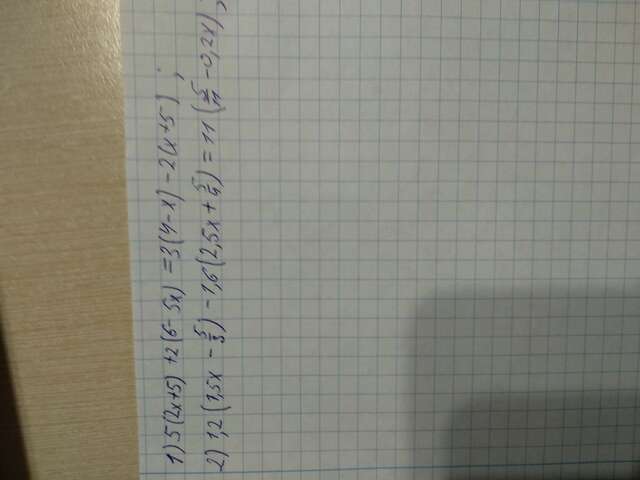 1) 5(2x+5) +2(6-5x) =3(4-x) -2(x+5) ;
2) 1,2(1,5x - 5/3) -1,6(2,5x+ 5/4) = 11 (5/11 -0,2x) ;